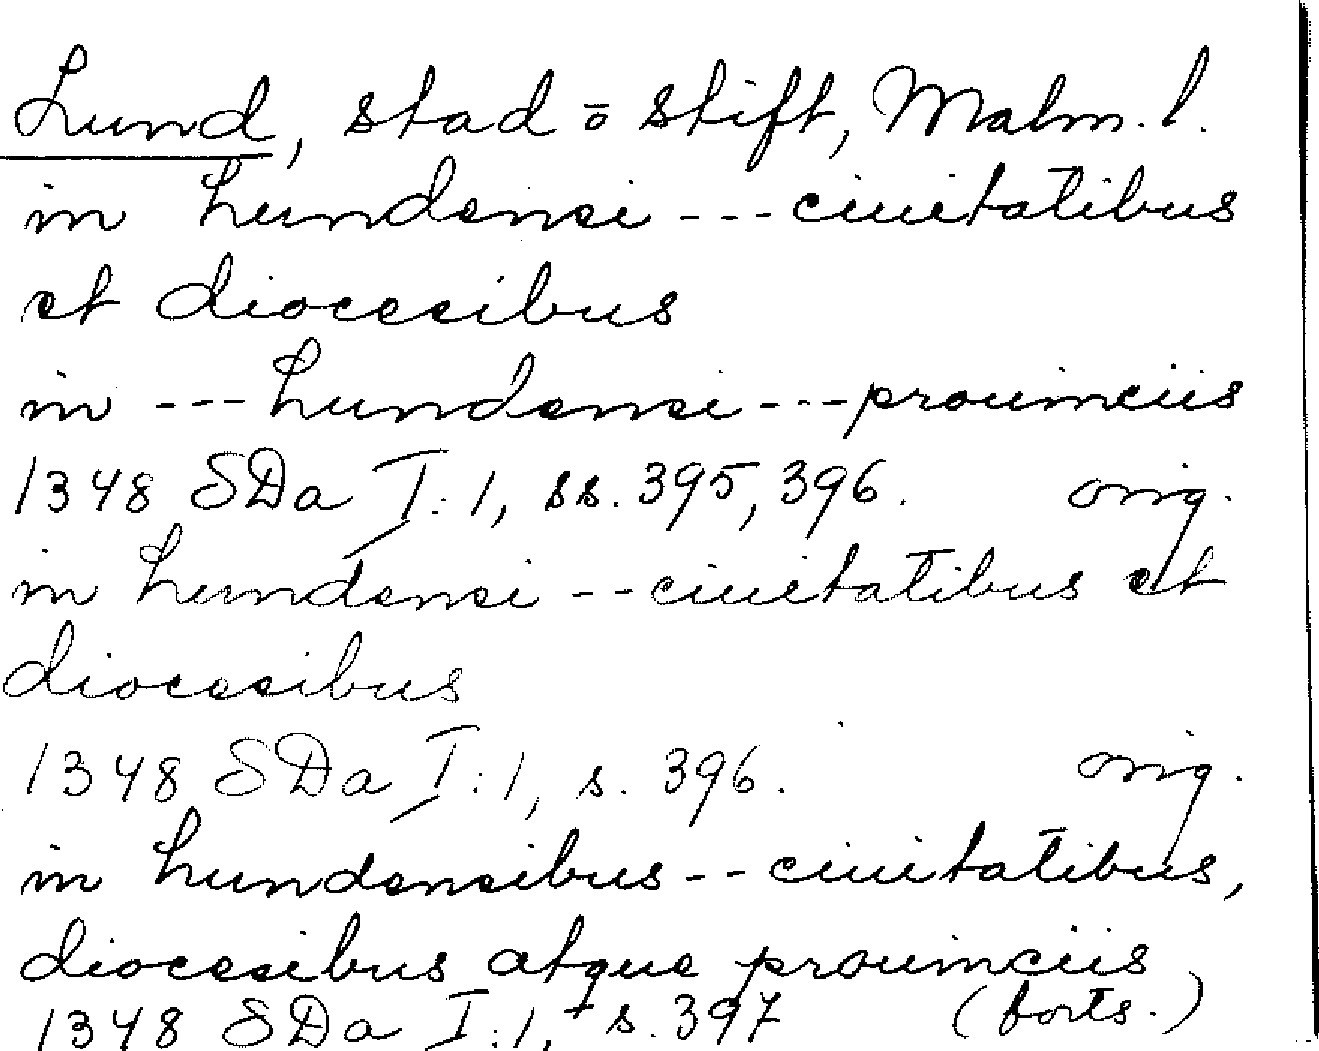 Lund, stad o stift, Malm. l.
in Lundensi --- ciuitatibus
et diocesibus
in --- Lundensi --- prouinciis
1348 SDa I:1, ss. 395, 396. orig.
in Lundensi -- ciuitatibus et
diocesibus
1348 SDa I:1, s. 396. orig.
in Lundensibus -- ciuitatibus,
diocesibus atque prouinciis
1348 SDa I:1, s. 397 (forts.)